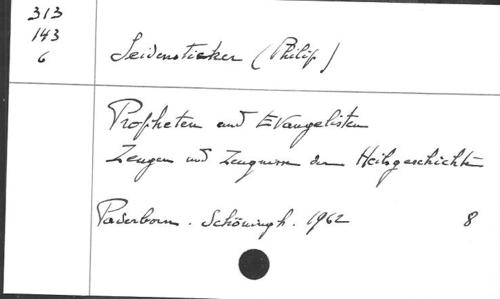 313
143
6
Seidensticker (Philip)
Propheten und Evangelisten
Zeugen und Zeugnisse der Heilsgeschichte
Paderborn. Schöningh. 1962 8